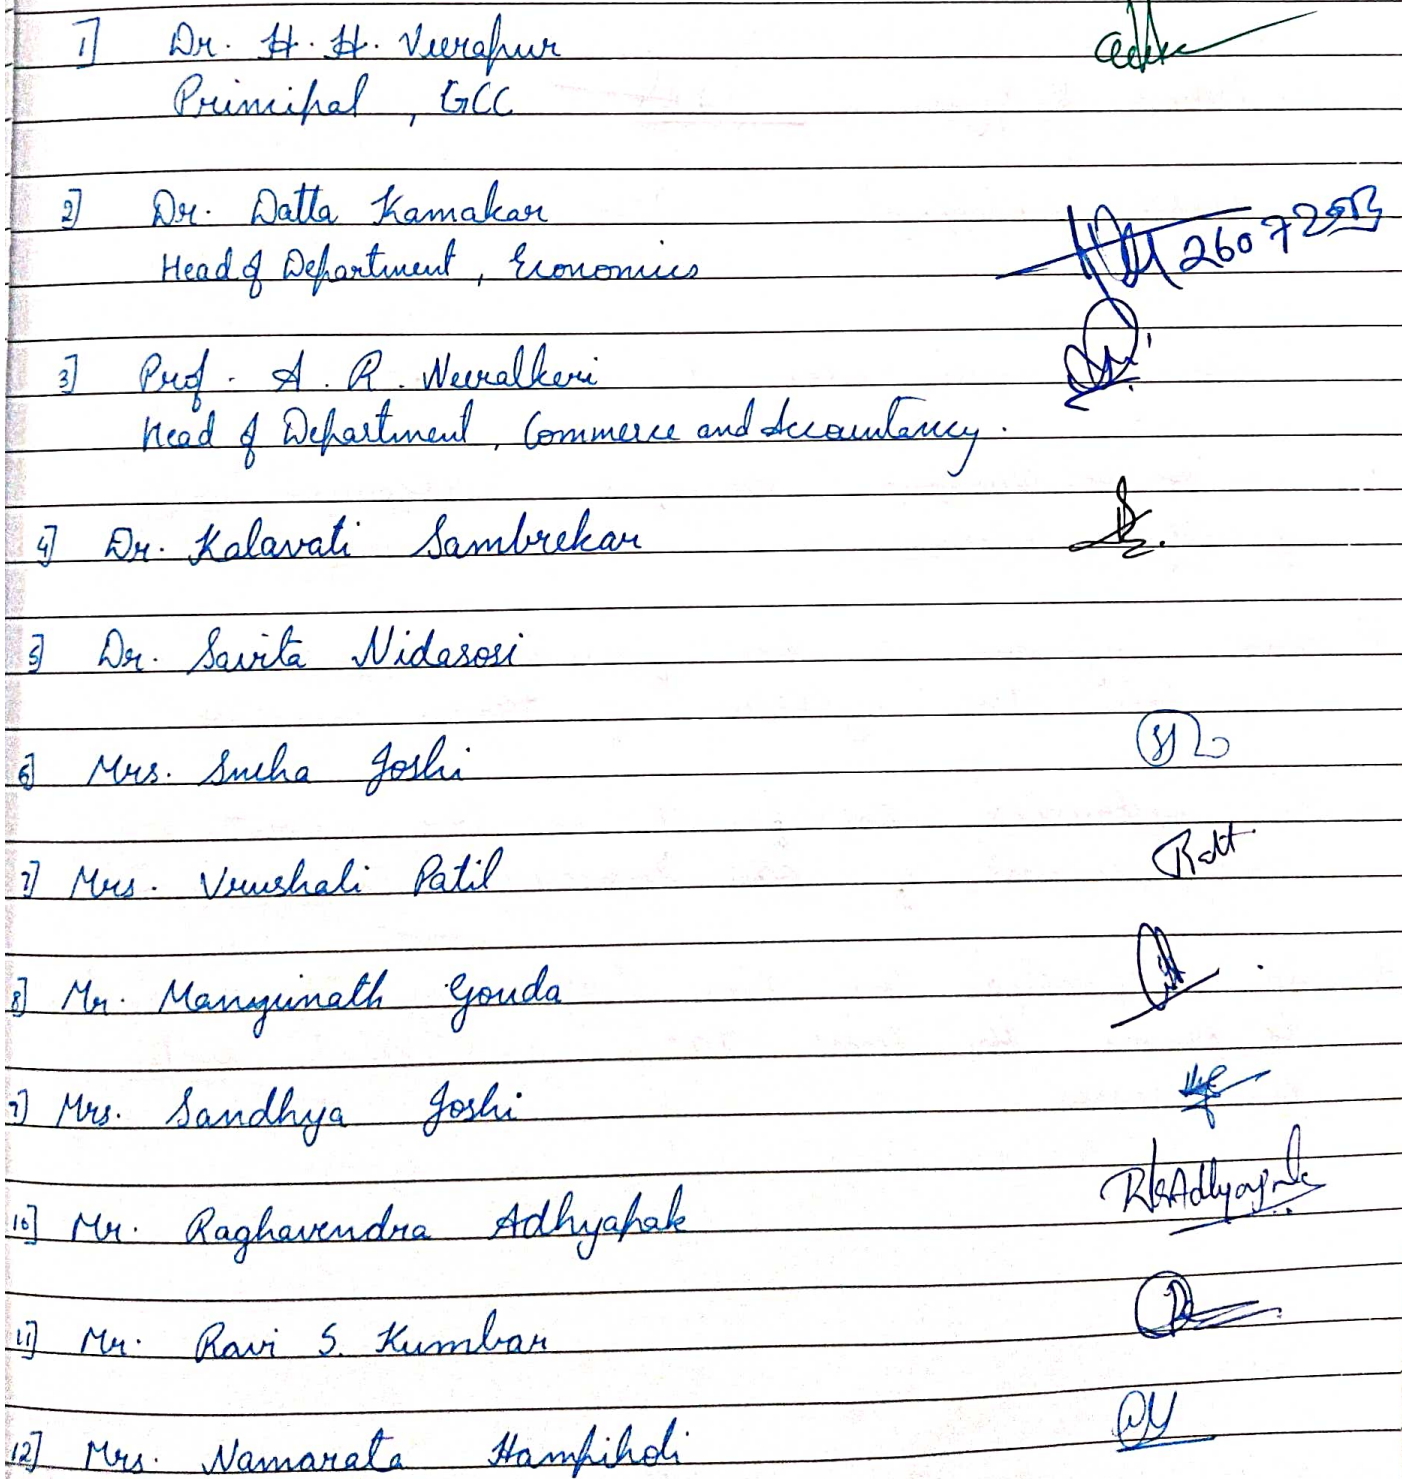 1] Dr. H. H. Veerapur
Principal, GCC
2] Dr. Datta Kamakar 26072023
Head of Department, Economics
3] Prof. A. R. Neeralkeri
Head of Department, Commerce and Accountancy.
4] Dr. Kalavati Sambrekar
5] Dr. Savita Nidasosi
6] Mrs. Sneha Joshi
7] Mrs. Vrushali Patil
8] Mr. Manjunath Gouda
9] Mrs. Sandhya Joshi
10] Mr. Raghavendra Adhyapak
11] Mr. Ravi S. Kumbar
12] Mrs. Namarata Hampiholi